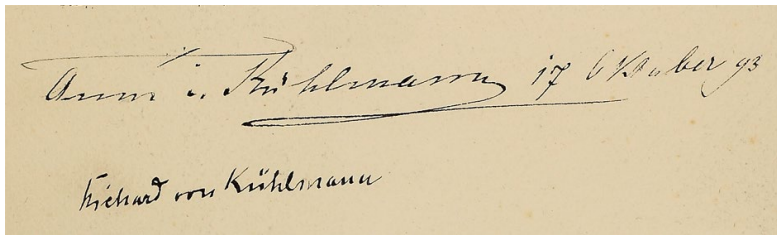 Anna v. Kühlmann 17 Oktober 93
Richard von Kühlmann